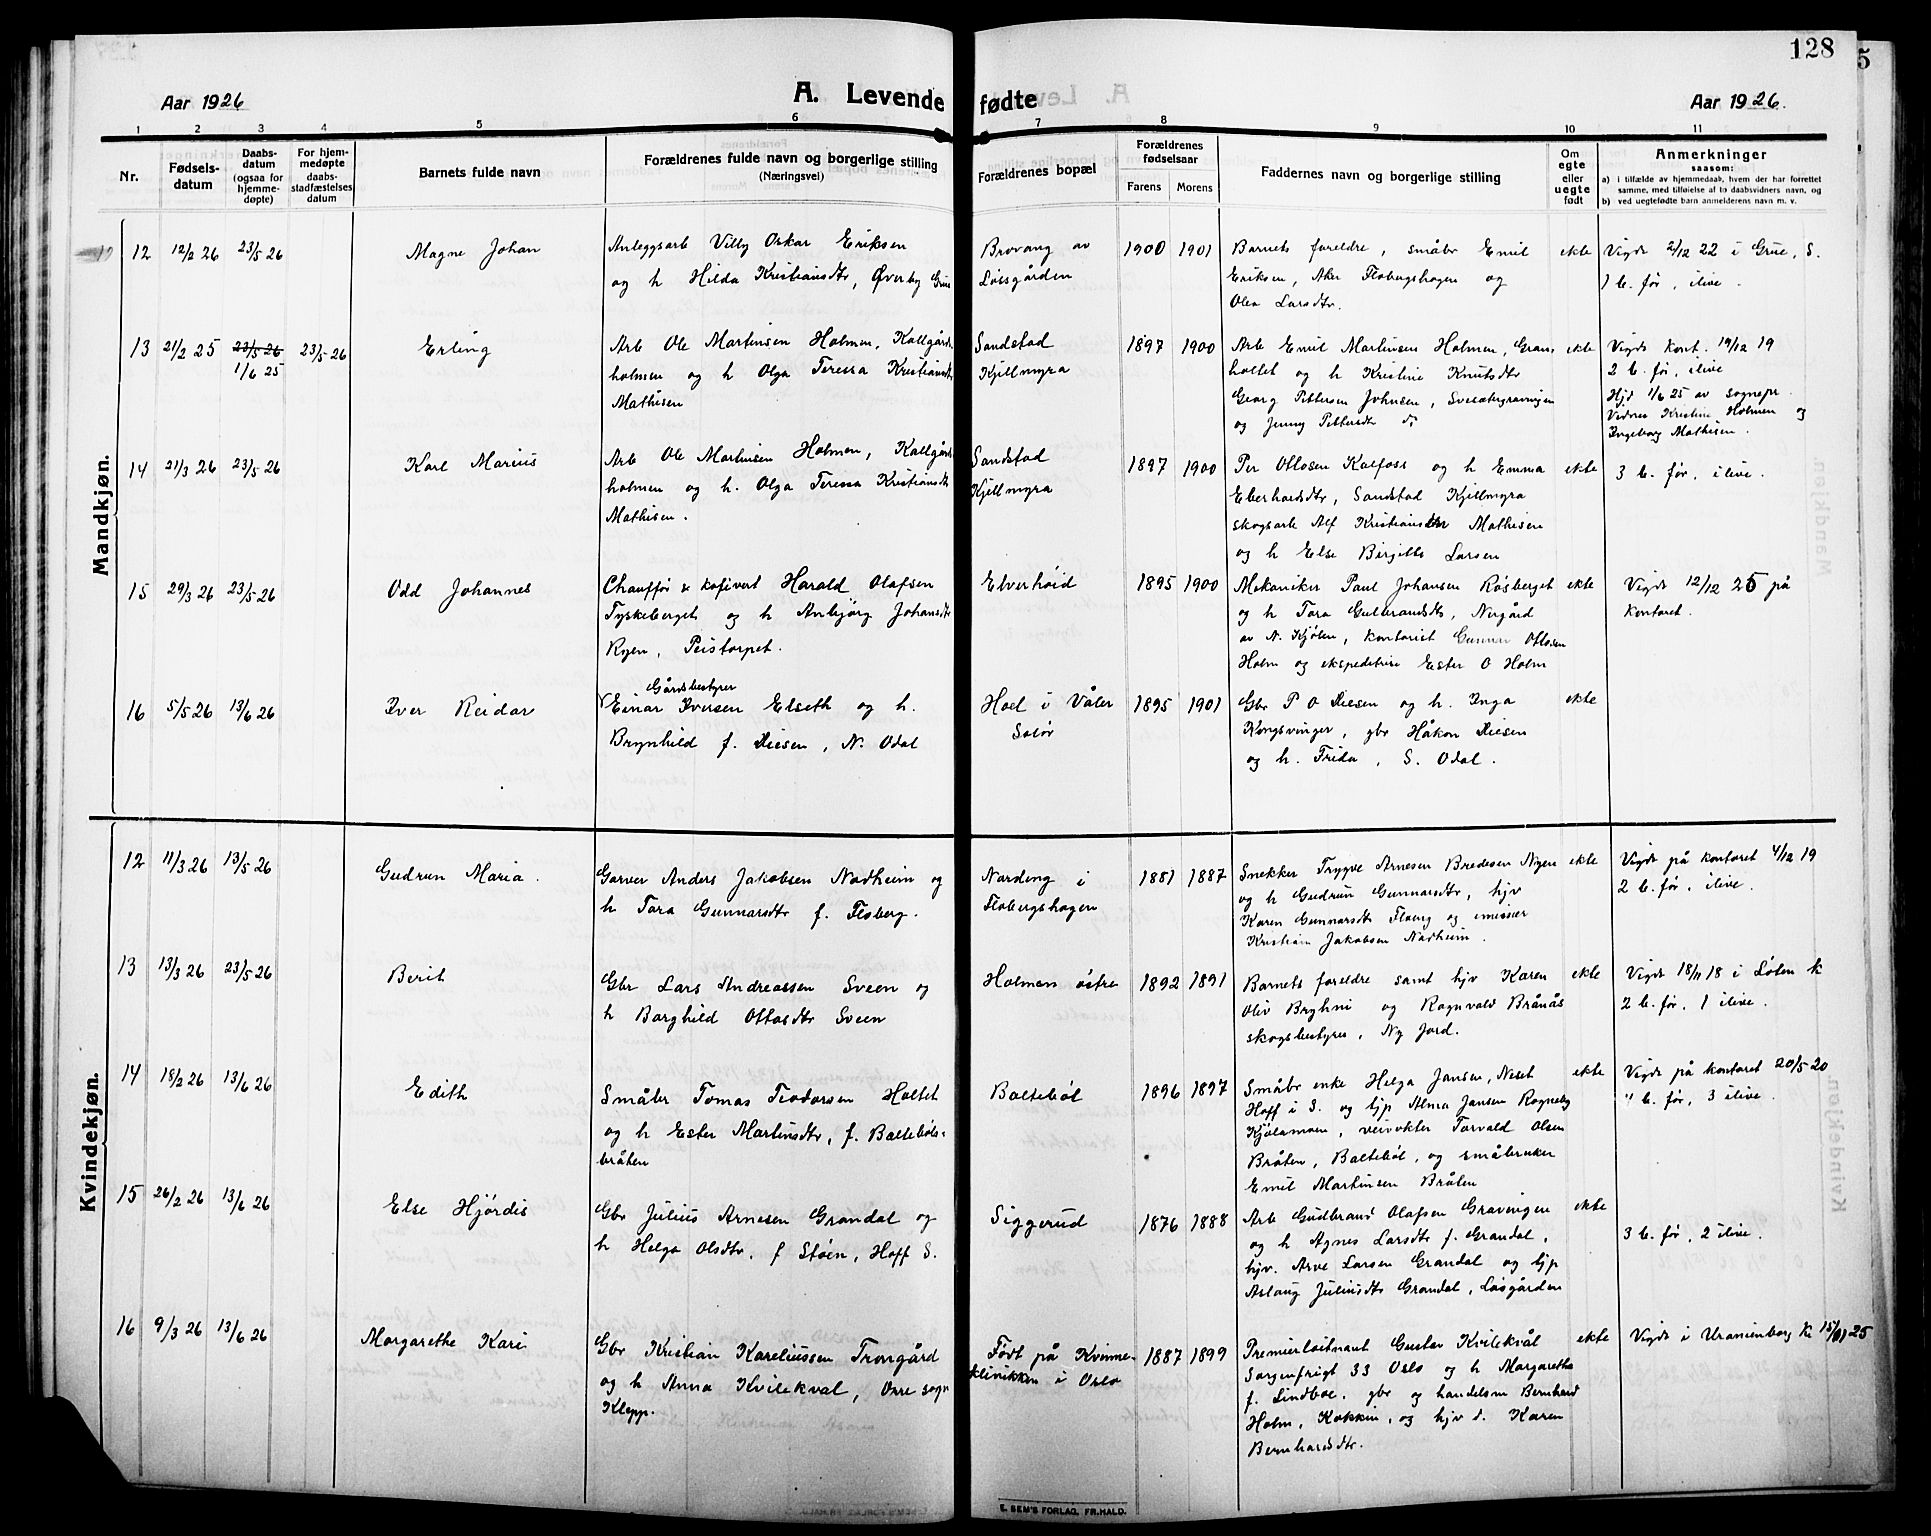 128
5
Aar 1926
A. Levende
fødte
Aar 1926.
1 2 3 4 5 6
7 8 9 10 11
Nr.
Fødsels-
datum
Daabs-
datum
(ogsaa for
hjemme-
døpte)
For hjem-
medøpte
daabs-
stadfæstelses
datum
Barnets fulde navn
Forældrenes fulde navn og borgerlige stilling
(Næringsvei)
Forældrenes bopæl
Forældrenes
fødselsaar
Farens
Morens
Faddernes navn og borgerlige stilling
Om
egte
eller
uegte
født
Anmerkninger
saasom:
a) i tilfælde av hjemmedaab, hvem der har forrettet
samme, med tilføielse af to daabsvidners navn, og
b) ved uegtefødte barn anmelderens navn m. v.
Mandkjøn.
12 12/2 26 23/5 26
Magne Johan
Anleggsarb Villy Oskar Eriksen
og h Hilda Kristiansdtr, Øverby Grue
Brovang av
Løsgården
1900 1901
Barnets foreldre, småbr Emil
Eriksen, Aker Flobergshagen og
Olea Larsdtr.
ekte
Vigde 2/12 22 i Grue, S.
1 b. før, ilive.
13 21/2 25 23/5 26 23/5 26
1/6 25
Erling
Arb Ole Martinsen Holmen, Kallgårds
holmen og h Olga Teressa Kristiansdtr
Mathisen
Sandstad
Kjellmyra
1897 1900
Arb Emil Martinsen Holmen, Gran-
holtet og h Kristine Knutsdtr
Georg Pettersen Johnsen, Svesætergravingen
og Jenny Pettersdtr ds
ekte
Vigde kont. 19/12 19
2 b. før, ilive
Hjd 1/6 25 av sognepr.
Vidner Kristine Holmen og
Ingeborg Mathisen.
14 21/3 26 23/5 26
Karl Marius
Arb Ole Martinsen Holmen, Kallgårds
holmen og h. Olga Teressa Kristiansdtr
Mathisen.
Sandstad
Kjellmyra
1897 1900
Per Ottosen Kalfoss og h Emma
Eberhardsdtr, Sandstad Kjellmyra
skogsarb Alf Kristiansen Mathisen
og h Else Birgitte Larsen
ekte
3 b. før, ilive.
15 29/3 26 23/5 26
Odd Johannes
Chauffør & kafivert Harald Olafsen
Tyskeberget og h Anbjørg Johansdtr
Ryen, Peistorpet.
Elverhøid
1895 1900
Mekaniker Paul Johansen Råsberget
og h Tora Gulbrandsdtr, Nergård
av N. Kjølen, kontorist Gunnar Ottosen
Holm og ekspeditrise Ester O Holm
ekte
Vigde 12/12 25 på
kontoret.
16 5/5 26 13/6 26
Iver Reidar
Gårdsbestyrer
Einar Iversen Elseth og h.
Brynhild f. Diesen, N. Odal
Hoel i Våler
Solør
1895 1901
Gbr P O Diesen og h. Inga
Kongsvinger, gbr Håkon Diesen
og h. Frida, S. Odal.
ekte
Kvindekjøn.
12 11/3 26 13/5 26
Gudrun Maria.
Garver Anders Jakobsen Nodheim og
h Tora Gunnarsdtr f. Floberg.
Nordeng i
Flobergshagen
1881 1887
Snekker Trygve Arnesen Bredesen Nyen
og h Gudrun Gunnarsdtr, hjv
Karen Gunnarsdtr Floberg og emissær
Kristian Jakobsen Nodheim.
ekte
Vigde på kontoret 4/12 19
2 b. før, ilive.
13 13/3 26 23/5 26
Berit
Gbr Lars Andreassen Sveen og
h Borghild Ottosdtr Sveen
Holmen østre
1892 1891
Barnets foreldre samt hjv Karen
Oliv Bryhni og Ragnvald Brånås
skogsbestyrer, Ny Jord.
ekte
Vigde 18/11 18 i Løten k
2 b. før, 1 ilive.
14 18/2 26 13/6 26
Edith
Småbr Tomas Teodorsen Holtet
og h Ester Martinsdtr, f. Baltebøls-
bråten
Baltebøl
1896 1897
Småbr enke Helga Jansen, Neset
Hoff i S. og tjp Alma Jansen Rogneby
Kjølamoen, veivokter Torvald Olsen
Bråten, Baltebøl, og småbruker
Emil Martinsen Bråten
ekte
Vigde på kontoret 20/5 20
4 b. før, 3 ilive.
15 26/2 26 13/6 26
Else Hjørdis
Gbr Julius Arnesen Grandal og
h Helga Olsdtr, f Støen, Hoff S.
Siggerud
1876 1888
Arb Gudbrand Olafsen Gravingen
og h Agnes Larsdtr f. Grandal,
hjv. Arve Larsen Grandal og tjp
Aslaug Juliusdtr Grandal, Løsgården
ekte
3 b. før, 2 ilive.
16 9/3 26 13/6 26
Margarethe Kari
Gbr Kristian Kareliussen Trongård
og h Anna Kvilekval, Orre sogn
Klepp.
Født på Kvinne-
klinikken i Oslo
1887 1899
Premierløitnant Gustav Kvilekvål
Sorgenfrigt 33 Oslo og h Margarethe
f. Lindboe, gbr og handelsm Bernhard
Holm, Kokkin, og hjv d. Karen
Bernhardsdtr.
ekte
Vigde i Uranienborg k. 25
E. SEM'S FORLAG, FR.HALD.